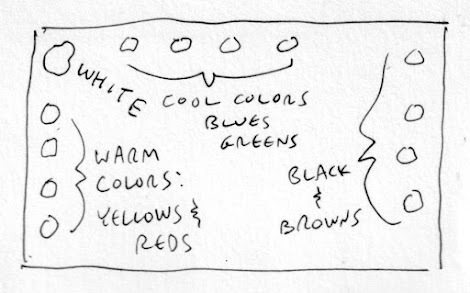 WHITE
COOL COLORS
BLUES
GREENS
WARM
COLORS:
YELLOWS &
REDS
BLACK
&
BROWNS